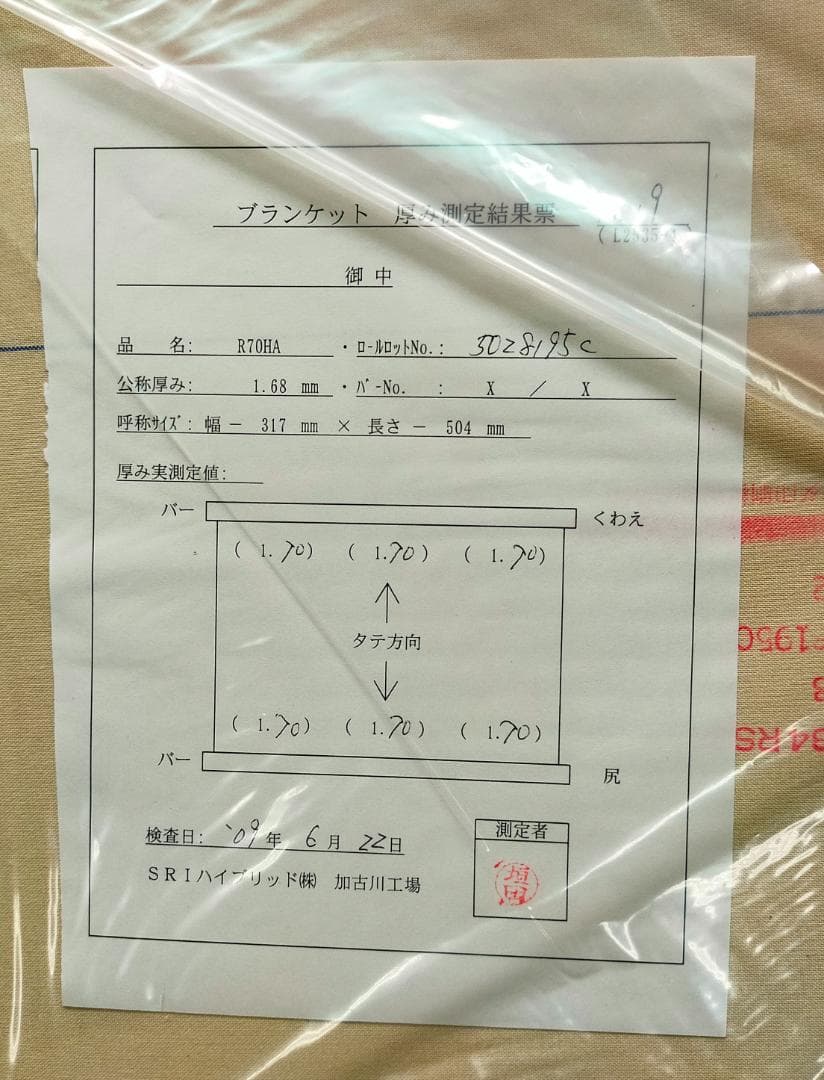 ブランケット 厚み測定結果票
9
御中
品 名: R70HA ・ﾛｰﾙﾛｯﾄNo.: 3028195C
公称厚み: 1.68 mm ・ﾊﾞｰNo. : X / X
呼称ｻｲｽﾞ: 幅 － 317 mm × 長さ － 504 mm
厚み実測定値:
バー くわえ
( 1.70) ( 1.70) ( 1.70)
タテ方向
( 1.70) ( 1.70) ( 1.70)
バー 尻
検査日: '09年 6月 22日
測定者
SRIハイブリッド㈱ 加古川工場
垣田
1950
84 RS